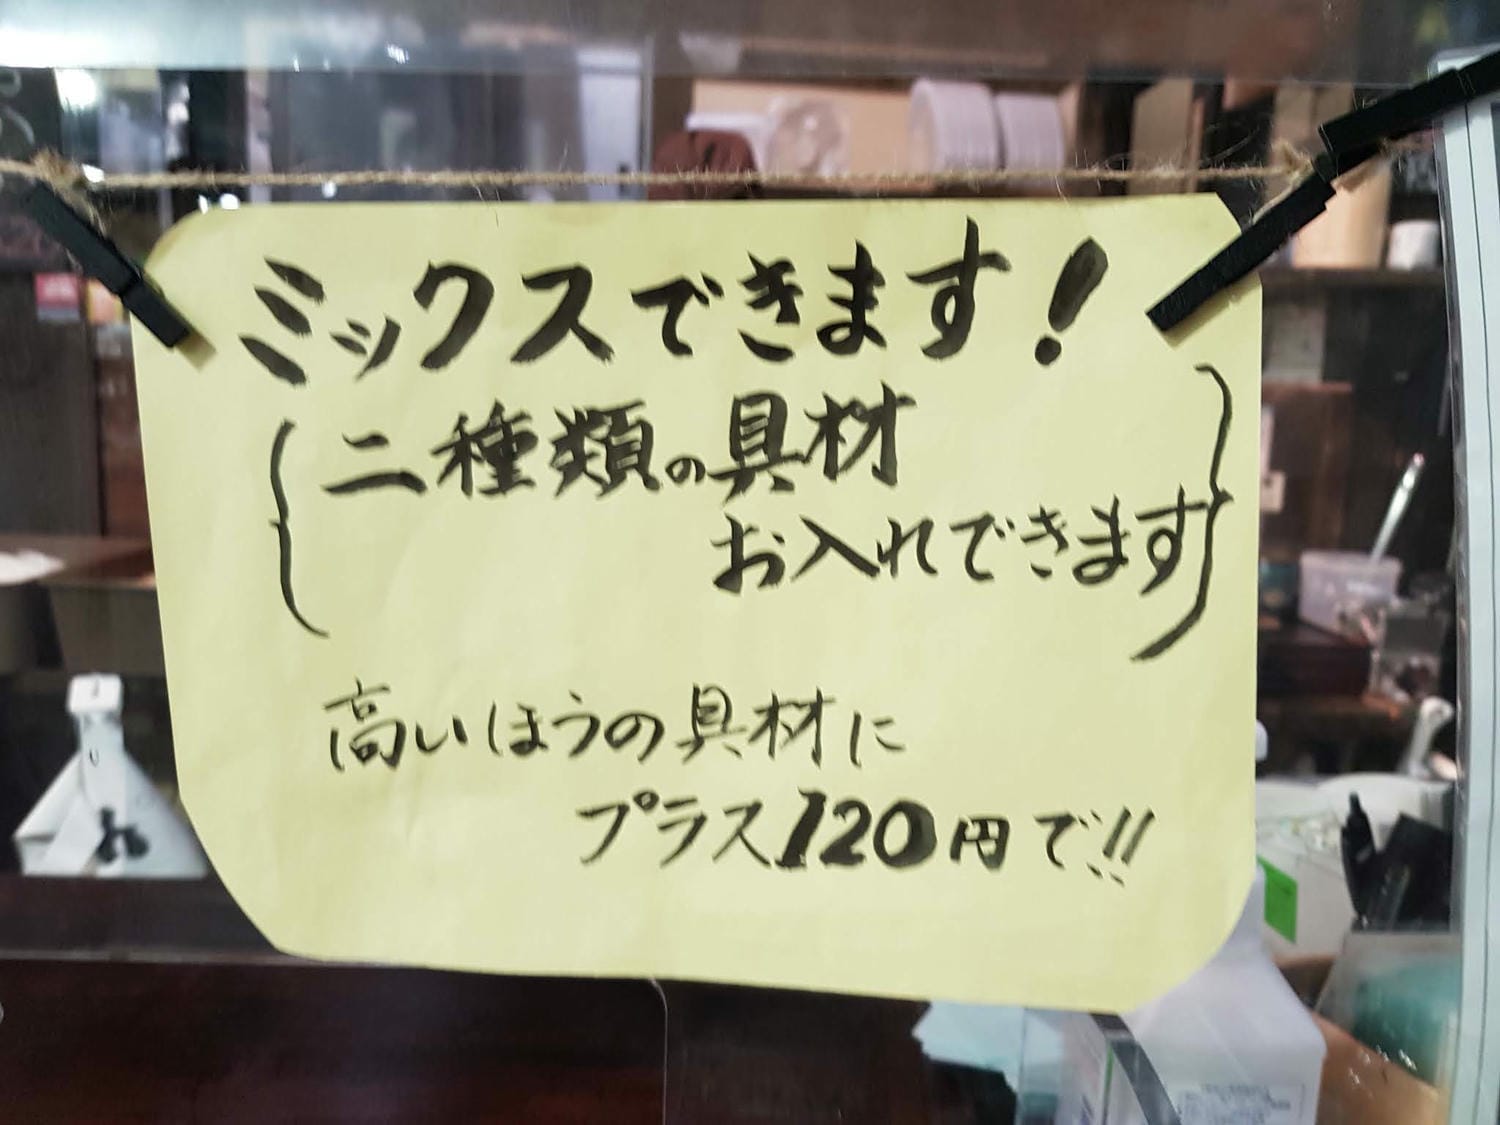 ミックスできます!
二種類の具材
お入れできます
高いほうの具材に
プラス120円で!!